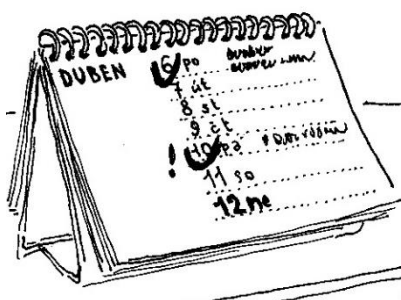 DUBEN
6 po
7 út
8 st
9 čt
! 10 pá
11 so
12 ne